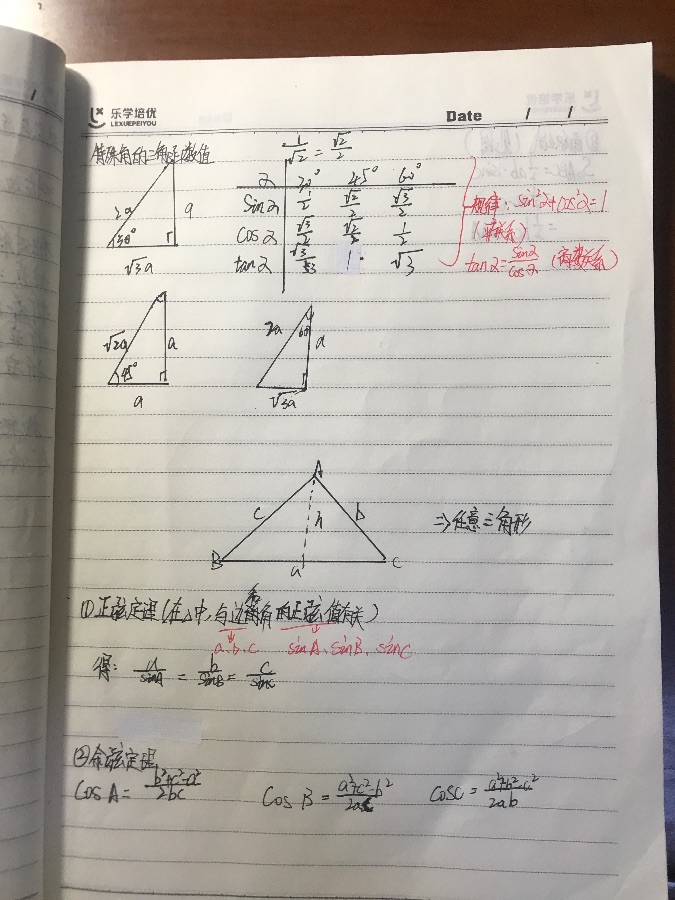 乐学培优
LEXUEPEIYOU
Date / /
特殊角的三角函数值
1/√2 = √2/2
2a a 30° √3a
α 30° 45° 60°
sinα 1/2 √2/2 √3/2
cosα √3/2 √2/2 1/2
tanα √3/3 1 √3
规律: sin²α+cos²α=1
(平方关系)
tanα=sinα/cosα (商数关系)
√2a a 45° a
2a 60° a √3a
A
c h b
B a C
⇒任意三角形
(1)正弦定理(在△中,与边和角的正弦值有关)
a、b、c sinA、sinB、sinC
得: a/sinA = b/sinB = c/sinC
(2)余弦定理
cosA = b²+c²-a²/2bc cosB = a²+c²-b²/2ac cosC = a²+b²-c²/2ab